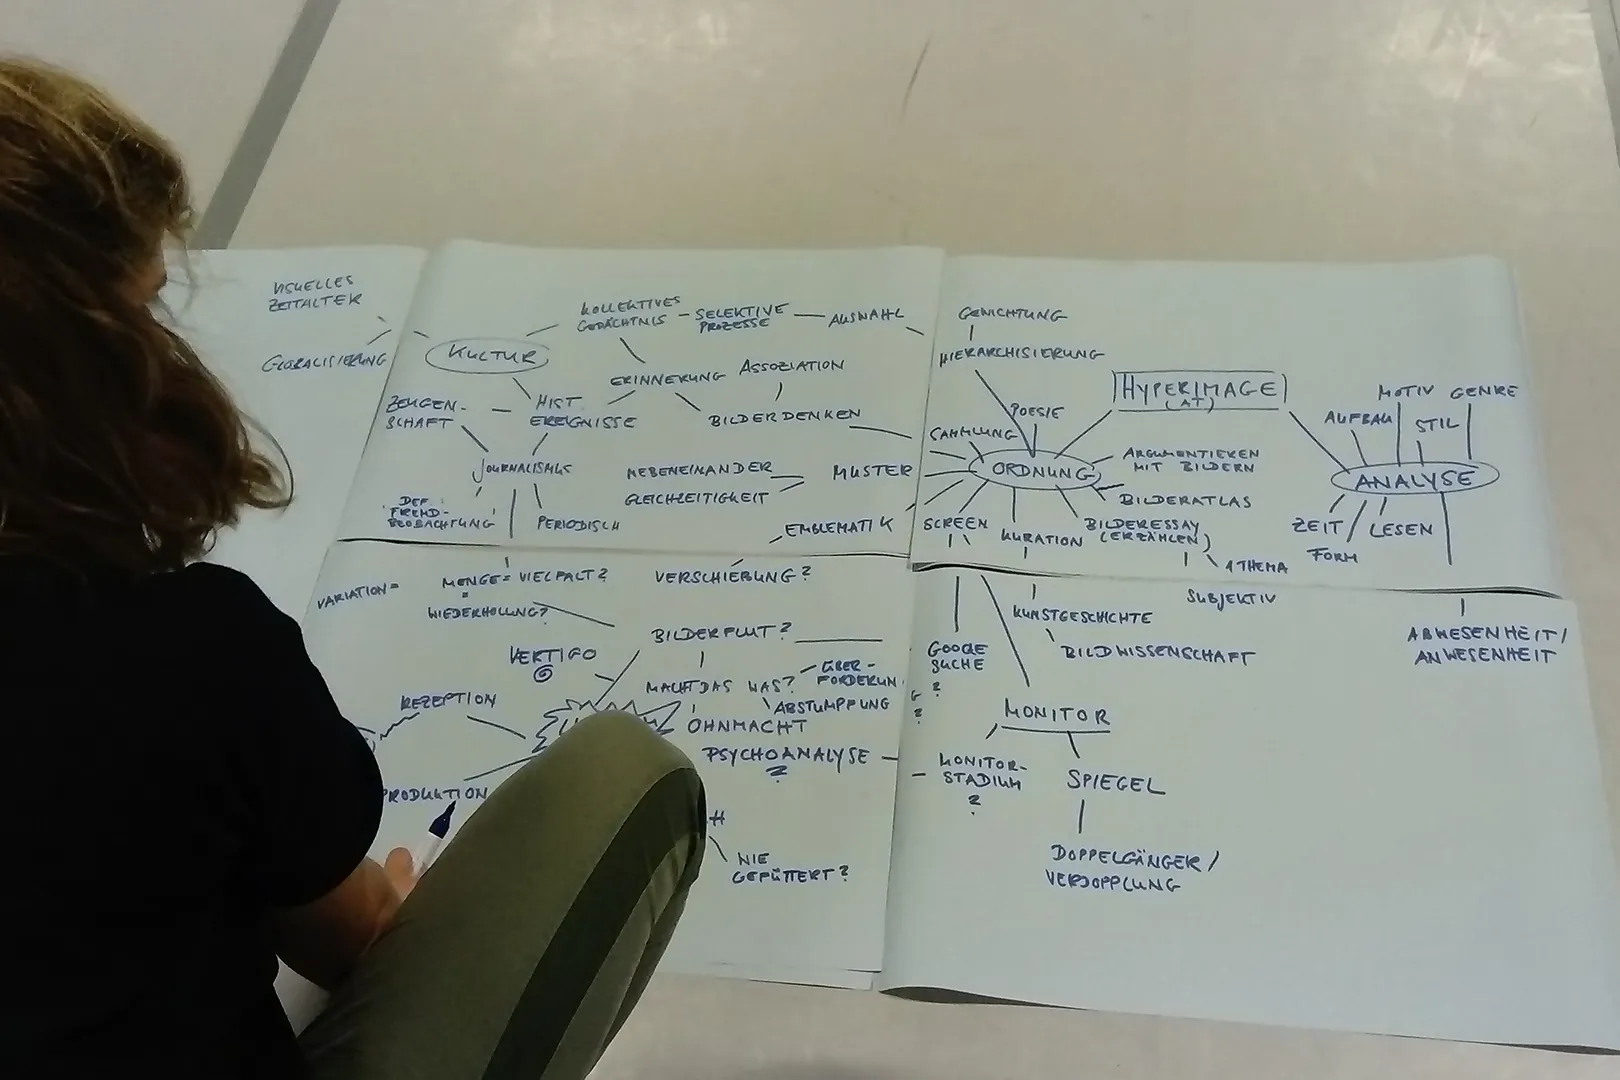 VISUELLES
ZEITALTER
GLOBALISIERUNG
KULTUR
KOLLEKTIVES
GEDÄCHTNIS
SELEKTIVE
PROZESSE
AUSWAHL
ERINNERUNG
ASSOZIATION
BILDERDENKEN
ZEUGEN-
SCHAFT
HIST.
EREIGNISSE
JOURNALISMUS
DEF.
'FREMD-
BEOBACHTUNG'
PERIODISCH
NEBENEINANDER
GLEICHZEITIGKEIT
MUSTER
EMBLEMATIK
GEWICHTUNG
HIERARCHISIERUNG
HYPERIMAGE
(AT)
POESIE
SAMMLUNG
ORDNUNG
ARGUMENTIEREN
MIT BILDERN
BILDERATLAS
SCREEN
KURATION
BILDERESSAY
(ERZÄHLEN)
1 THEMA
SUBJEKTIV
MOTIV
GENRE
AUFBAU
STIL
ANALYSE
ZEIT
LESEN
FORM
ABWESENHEIT/
ANWESENHEIT
VARIATION =
MENGE = VIELFALT?
=
WIEDERHOLUNG?
VERSCHIEBUNG?
BILDERFLUT?
VERTIGO
MACHT DAS WAS?
ÜBER-
FORDERUN
ABSTUMPFUNG
OHNMACHT
REZEPTION
PSYCHOANALYSE
?
PRODUKTION
H
NIE
GEFÜTTERT?
KUNSTGESCHICHTE
BILDWISSENSCHAFT
GOOGLE
SUCHE
?
MONITOR
MONITOR-
STADIUM
?
SPIEGEL
DOPPELGÄNGER/
VERDOPPLUNG